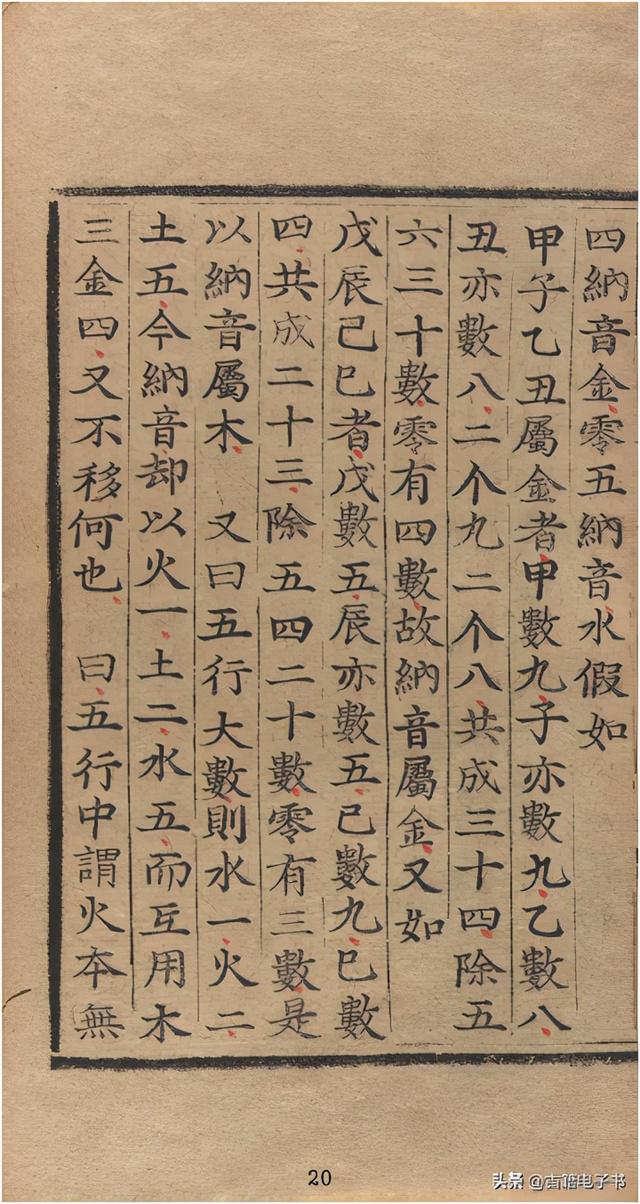 四納音金零五納音水假如
甲子乙丑屬金者甲數九子亦數九乙數八
丑亦數八二个九二个八共成三十四除五
六三十數零有四數故納音屬金又如
戊辰己巳者戊數五辰亦數五己數九巳數
四共成二十三除五四二十數零有三數是
以納音屬木 又曰五行大數則水一火二
土五今納音却以火一土二水五而互用木
三金四又不移何也 曰五行中謂火本無
20
头条@古籍电子书